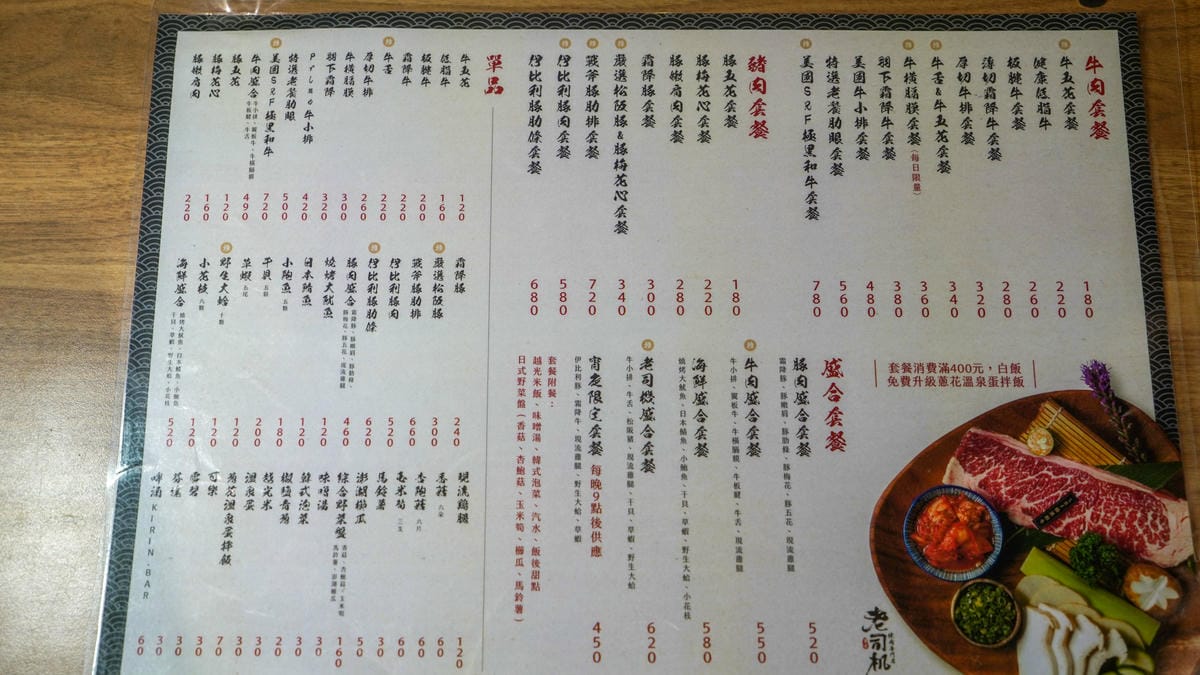 牛肉套餐
牛五花套餐 180
健康低脂牛 220
板腱牛套餐 260
薄切霜降牛套餐 280
厚切牛排套餐 320
牛舌&牛五花套餐 340
牛橫膈膜套餐(每日限量) 360
羽下霜降牛套餐 380
美國牛小排套餐 480
特選老饕肋眼套餐 560
美國SRF極黑和牛套餐 780
豬肉套餐
豚五花套餐 180
豚梅花心套餐 220
豚嫩肩肉套餐 280
霜降豚套餐 300
嚴選松阪豚&豚梅花心套餐 340
戰斧豚肋排套餐 720
伊比利豚肉套餐 580
伊比利豚肋條套餐 680
套餐消費滿400元，白飯
免費升級蔥花溫泉蛋拌飯
盛合套餐
豚肉盛合套餐 520
霜降豚、豚嫩肩、豚肋條、豚梅花、豚五花、現流雞腿
牛肉盛合套餐 550
牛小排、翼板牛、牛橫膈膜、牛板腱、牛舌、現流雞腿
海鮮盛合套餐 580
燒烤大魷魚、日本鯖魚、小鮑魚、干貝、草蝦、野生大蛤、小花枝
老司機盛合套餐 620
牛小排、牛舌、松阪豬、現流雞腿、干貝、草蝦、野生大蛤
宵夜限定套餐 每晚9點後供應 450
伊比利豚、霜降牛、現流雞腿、野生大蛤、草蝦
套餐附餐：
越光米飯、味噌湯、韓式泡菜、汽水、飯後甜點
日式野菜盤(香菇、杏鮑菇、玉米筍、櫛瓜、馬鈴薯)
單品
牛五花 120
低脂牛 160
板腱牛 200
霜降牛 220
牛舌 220
厚切牛排 260
牛橫膈膜 300
羽下霜降 320
Prime牛小排 420
特選老饕肋眼 500
美國SRF極黑和牛 720
牛肉盛合 490
牛小排、翼板牛、牛橫膈膜
牛板腱、牛舌
豚五花 120
豚梅花心 160
豚嫩肩肉 220
霜降豚 240
嚴選松阪豚 300
戰斧豚肋排 600
伊比利豚肉 520
伊比利豚肋條 620
豚肉盛合 460
霜降豚、豚嫩肩、豚肋條、
豚梅花、豚五花、現流雞腿
燒烤大魷魚 120
日本鯖魚 120
小鮑魚 五顆 180
干貝 五顆 200
草蝦 五尾 120
野生大蛤 十顆 120
小花枝 六顆 180
海鮮盛合 520
燒烤大魷魚、日本鯖魚、小鮑魚
干貝、草蝦、野生大蛤、小花枝
現流雞腿 120
香菇 六朵 60
杏鮑菇 六片 60
玉米筍 三支 60
馬鈴薯 30
澎湖櫛瓜 50
綜合野菜盤 160
香菇、杏鮑菇、玉米筍
馬鈴薯、澎湖櫛瓜
味噌湯 30
韓式泡菜 50
椒鹽青蔥 20
越光米 20
溫泉蛋 30
蔥花溫泉蛋拌飯 70
可樂 30
雪碧 30
芬達 30
啤酒 60
KIRIN·BAR
老司机
燒肉專門店